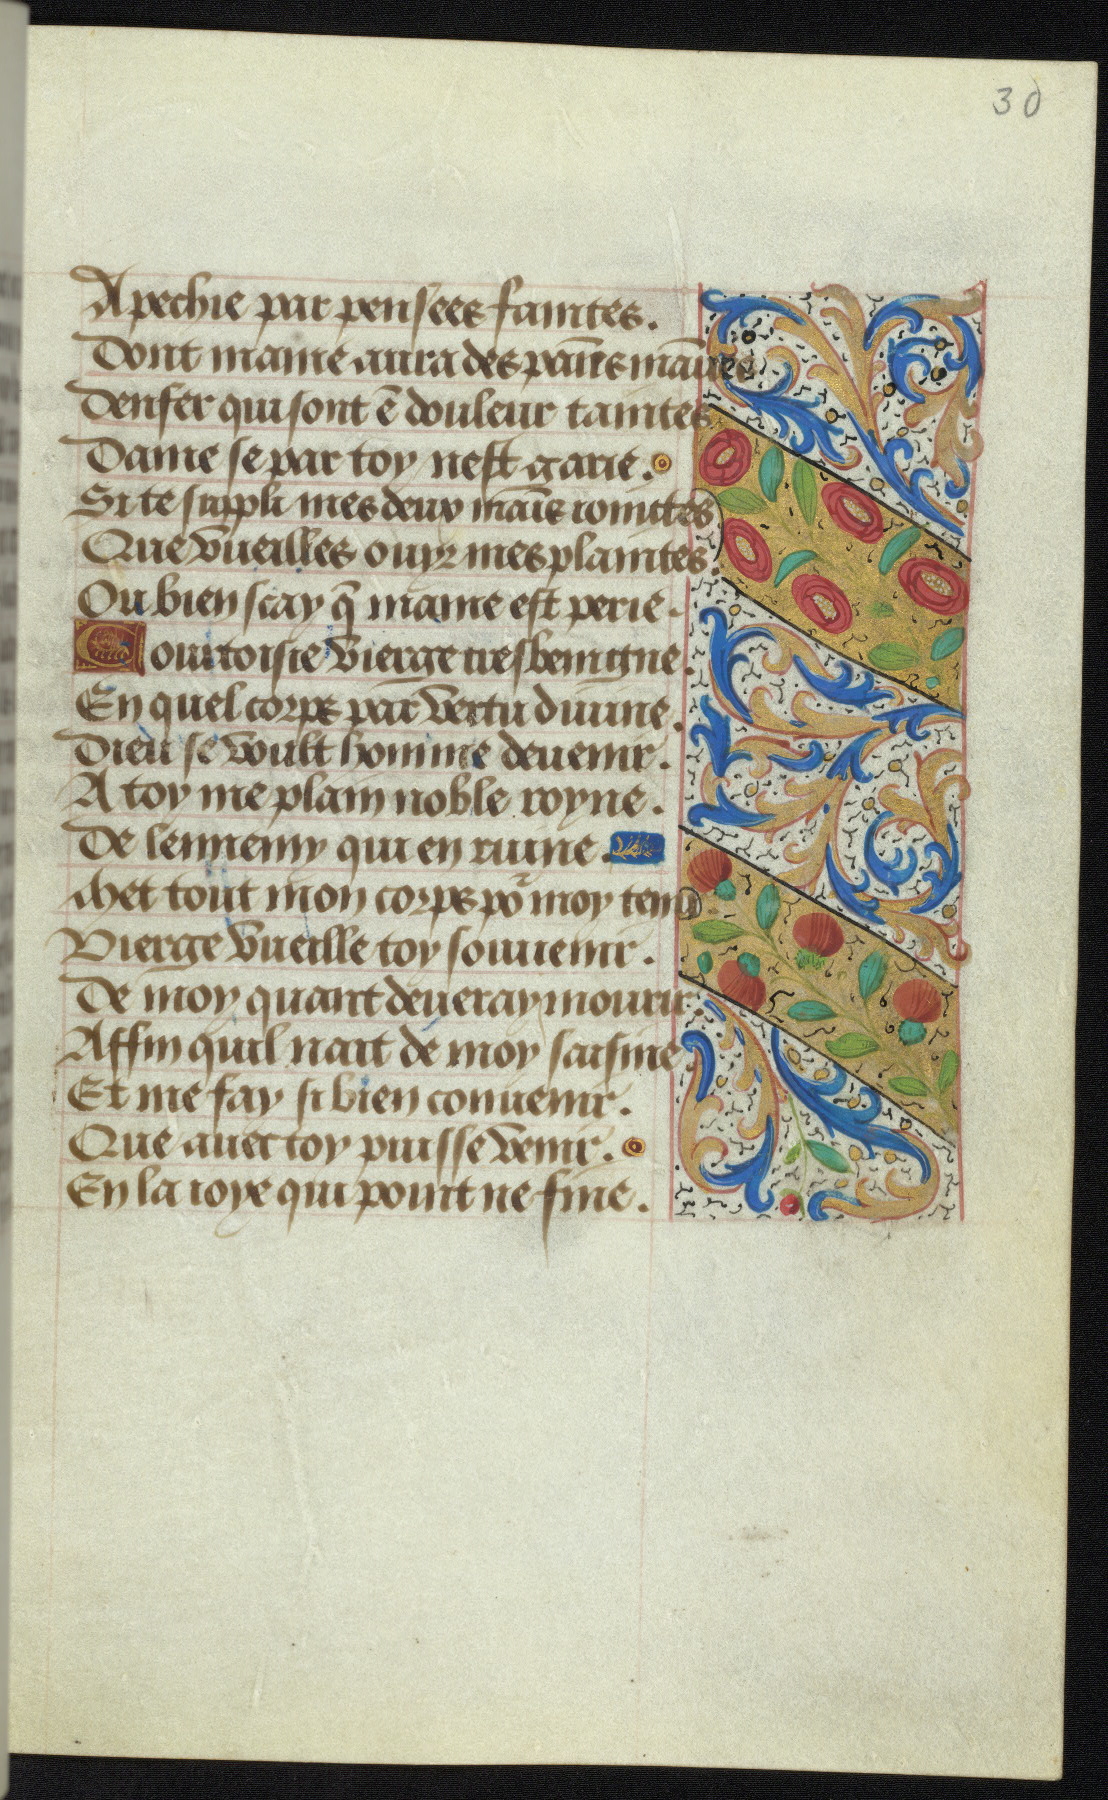 30
A pechie par pensees faintes.
Dont mame aura des pain̄es mai̅ntes
Denfer qui sont ē douleur taintes
Dame se par toy nest garie.
Si te suppli mes deux mai̅s iointtes
Que vueilles ouyr mes plaintes.
Ou bien scay q̄ mame est perie.
Courtoisie vierge tresbenigne.
En quel corps par vertu diuine.
Dieu se voult homme deuenir.
A toy me plain noble royne.
De lennemy qui en ruine.
Met tout mon corps po᷑ moy tenir
Vierge vueille toy souuenir.
De moy quant deueray mourir.
Affin quil nait de moy saisine.
Et me fay si bien conuenir.
Que auec toy puisse venir.
En la ioye qui point ne fine.